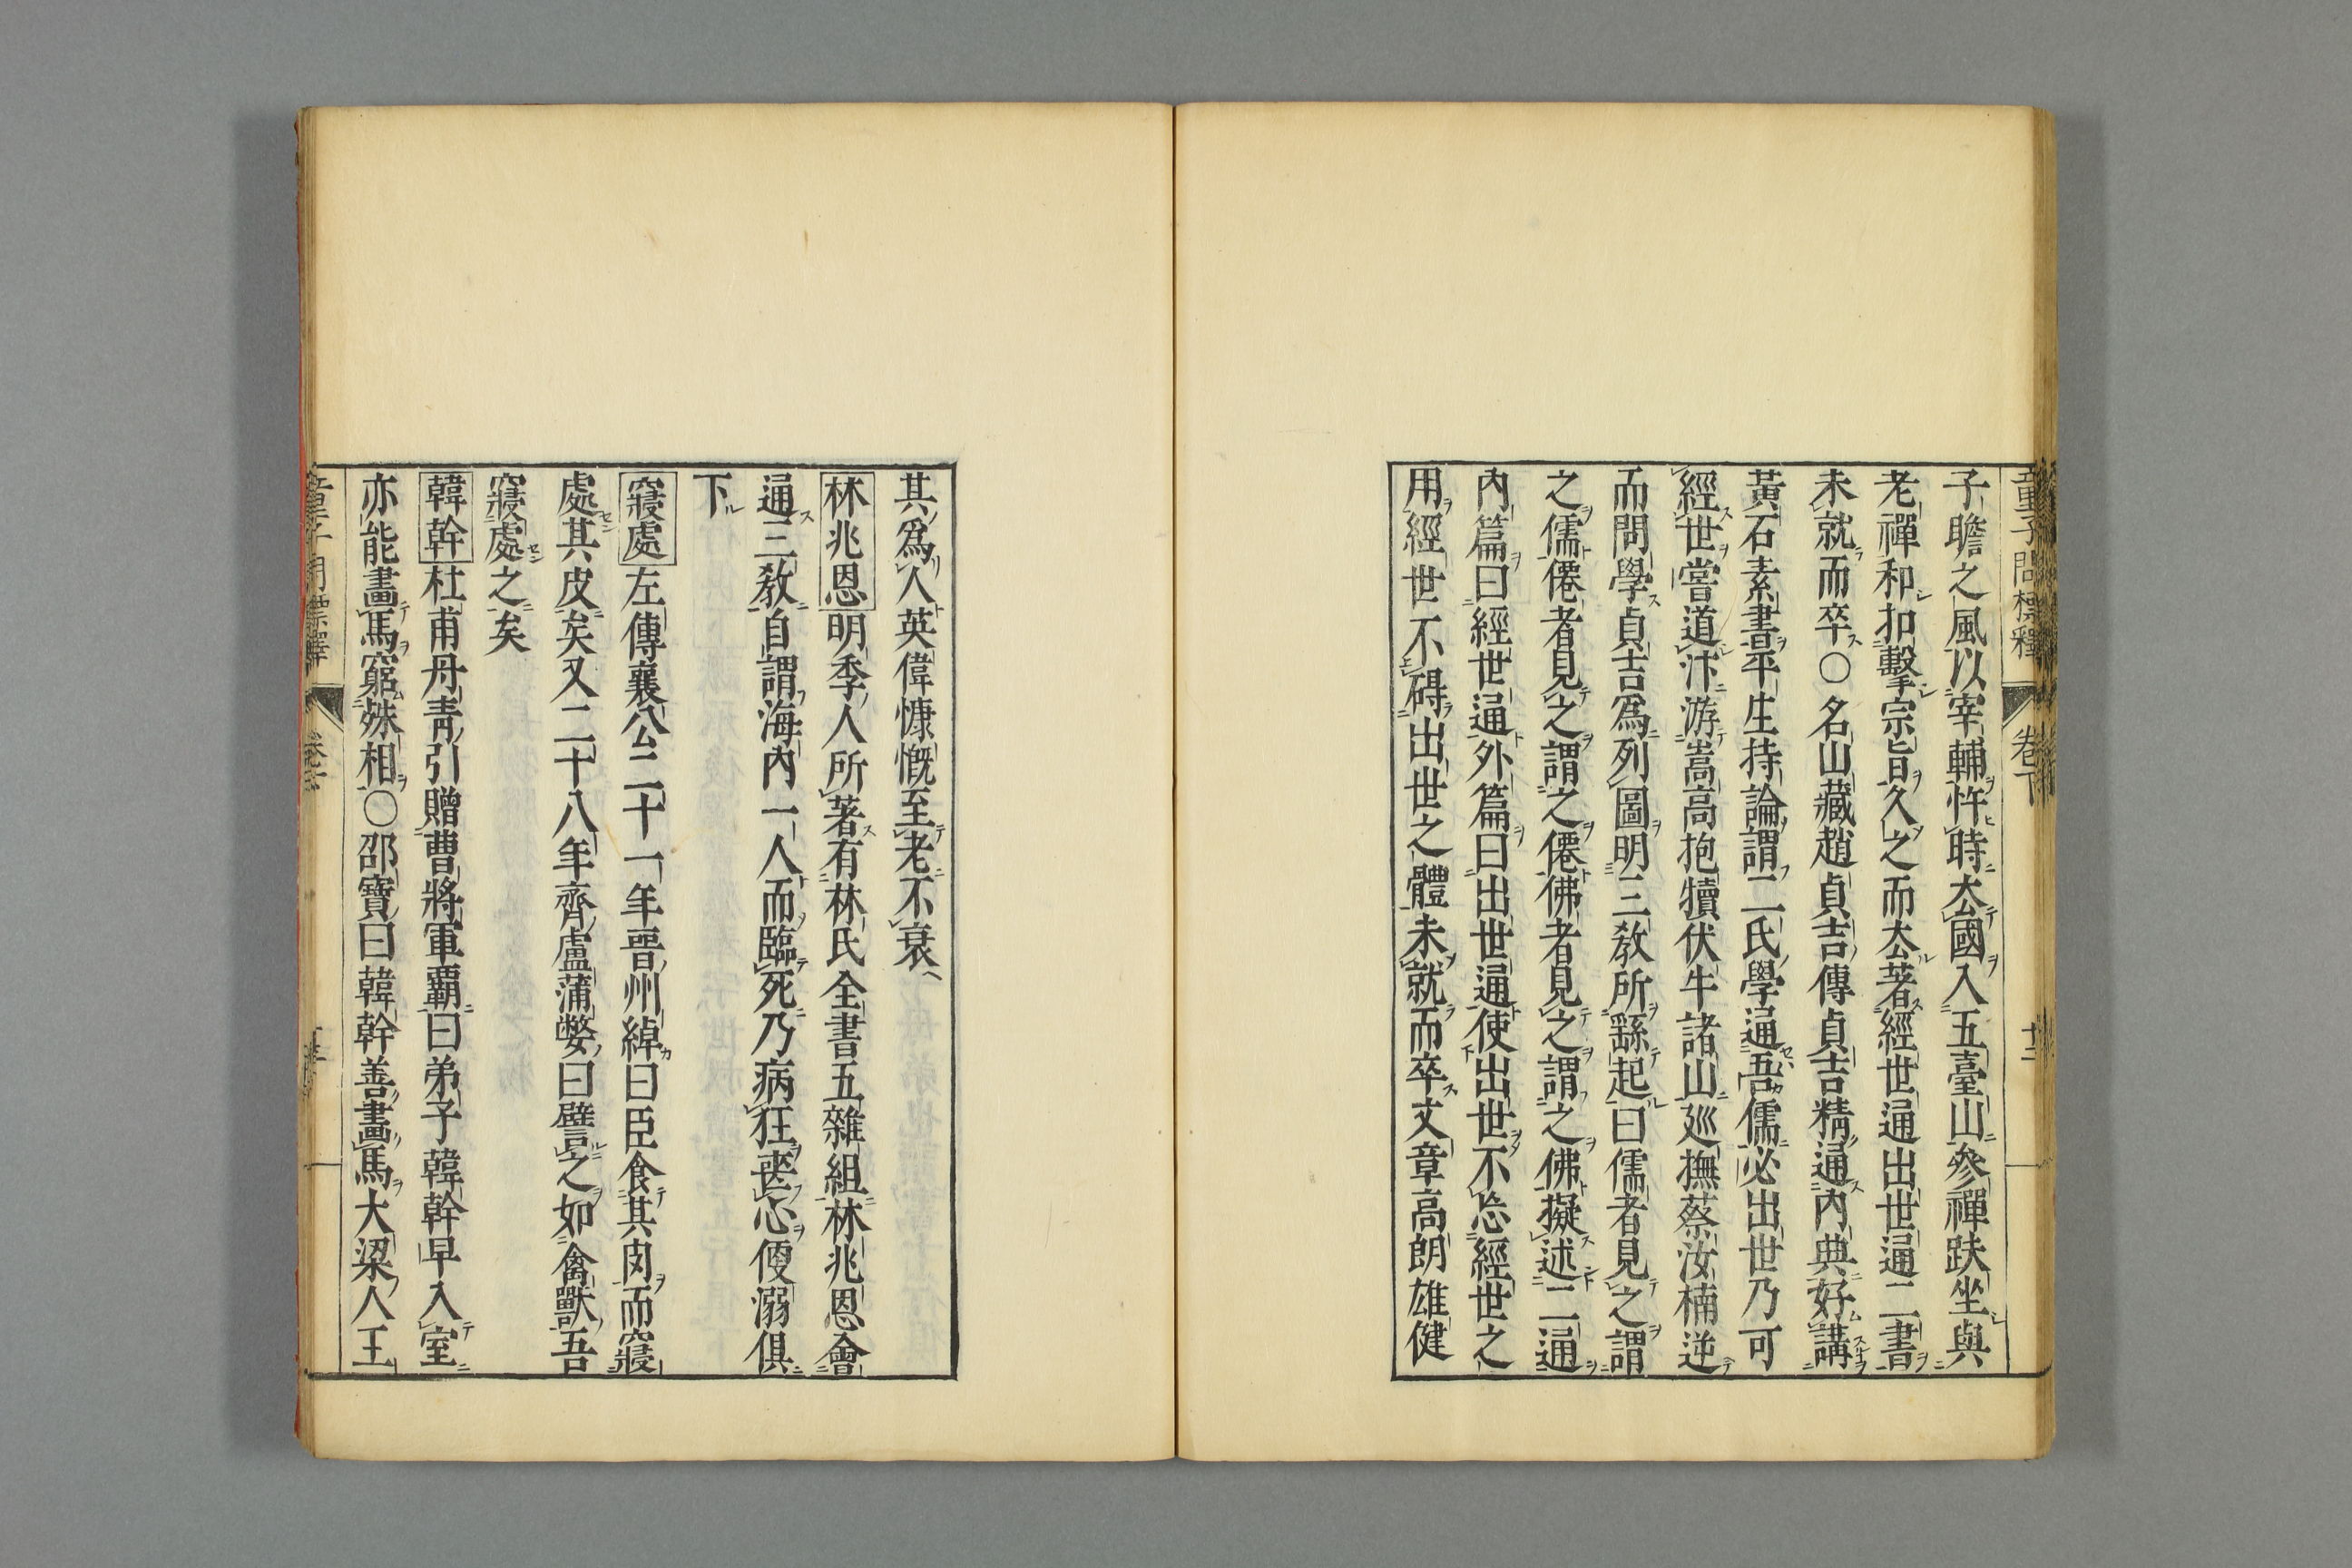 童子問標釋 卷下 十二
子瞻之風以宰輔忤時去國入五臺山參禪趺坐與
老禪和扣擊宗旨久之而去著經世通出世通二書
未就而卒○名山藏趙貞吉傳貞吉精通內典好講
黃石素書平生持論謂二氏學通吾儒必出世乃可
經世嘗道汴游嵩高抱犢伏牛諸山巡撫蔡汝楠逆
而問學貞吉爲列圖明三教所繇起曰儒者見之謂
之儒僊者見之謂之僊佛者見之謂之佛擬述二通
內篇曰經世通外篇曰出世通使出世不忘經世之
用經世不碍出世之體未就而卒文章高朗雄健
其爲人英偉慷慨至老不衰
林兆恩明季人所著有林氏全書五雜組林兆恩會
通三教自謂海內一人而臨死乃病狂喪心便溺俱
下
寢處左傳襄公二十一年晉州綽曰臣食其肉而寢
處其皮矣又二十八年齊盧蒲嫳曰譬之如禽獸吾
寢處之矣
韓幹杜甫丹青引贈曹將軍霸曰弟子韓幹早入室
亦能畫馬窮殊相○邵寶曰韓幹善畫馬大梁人王